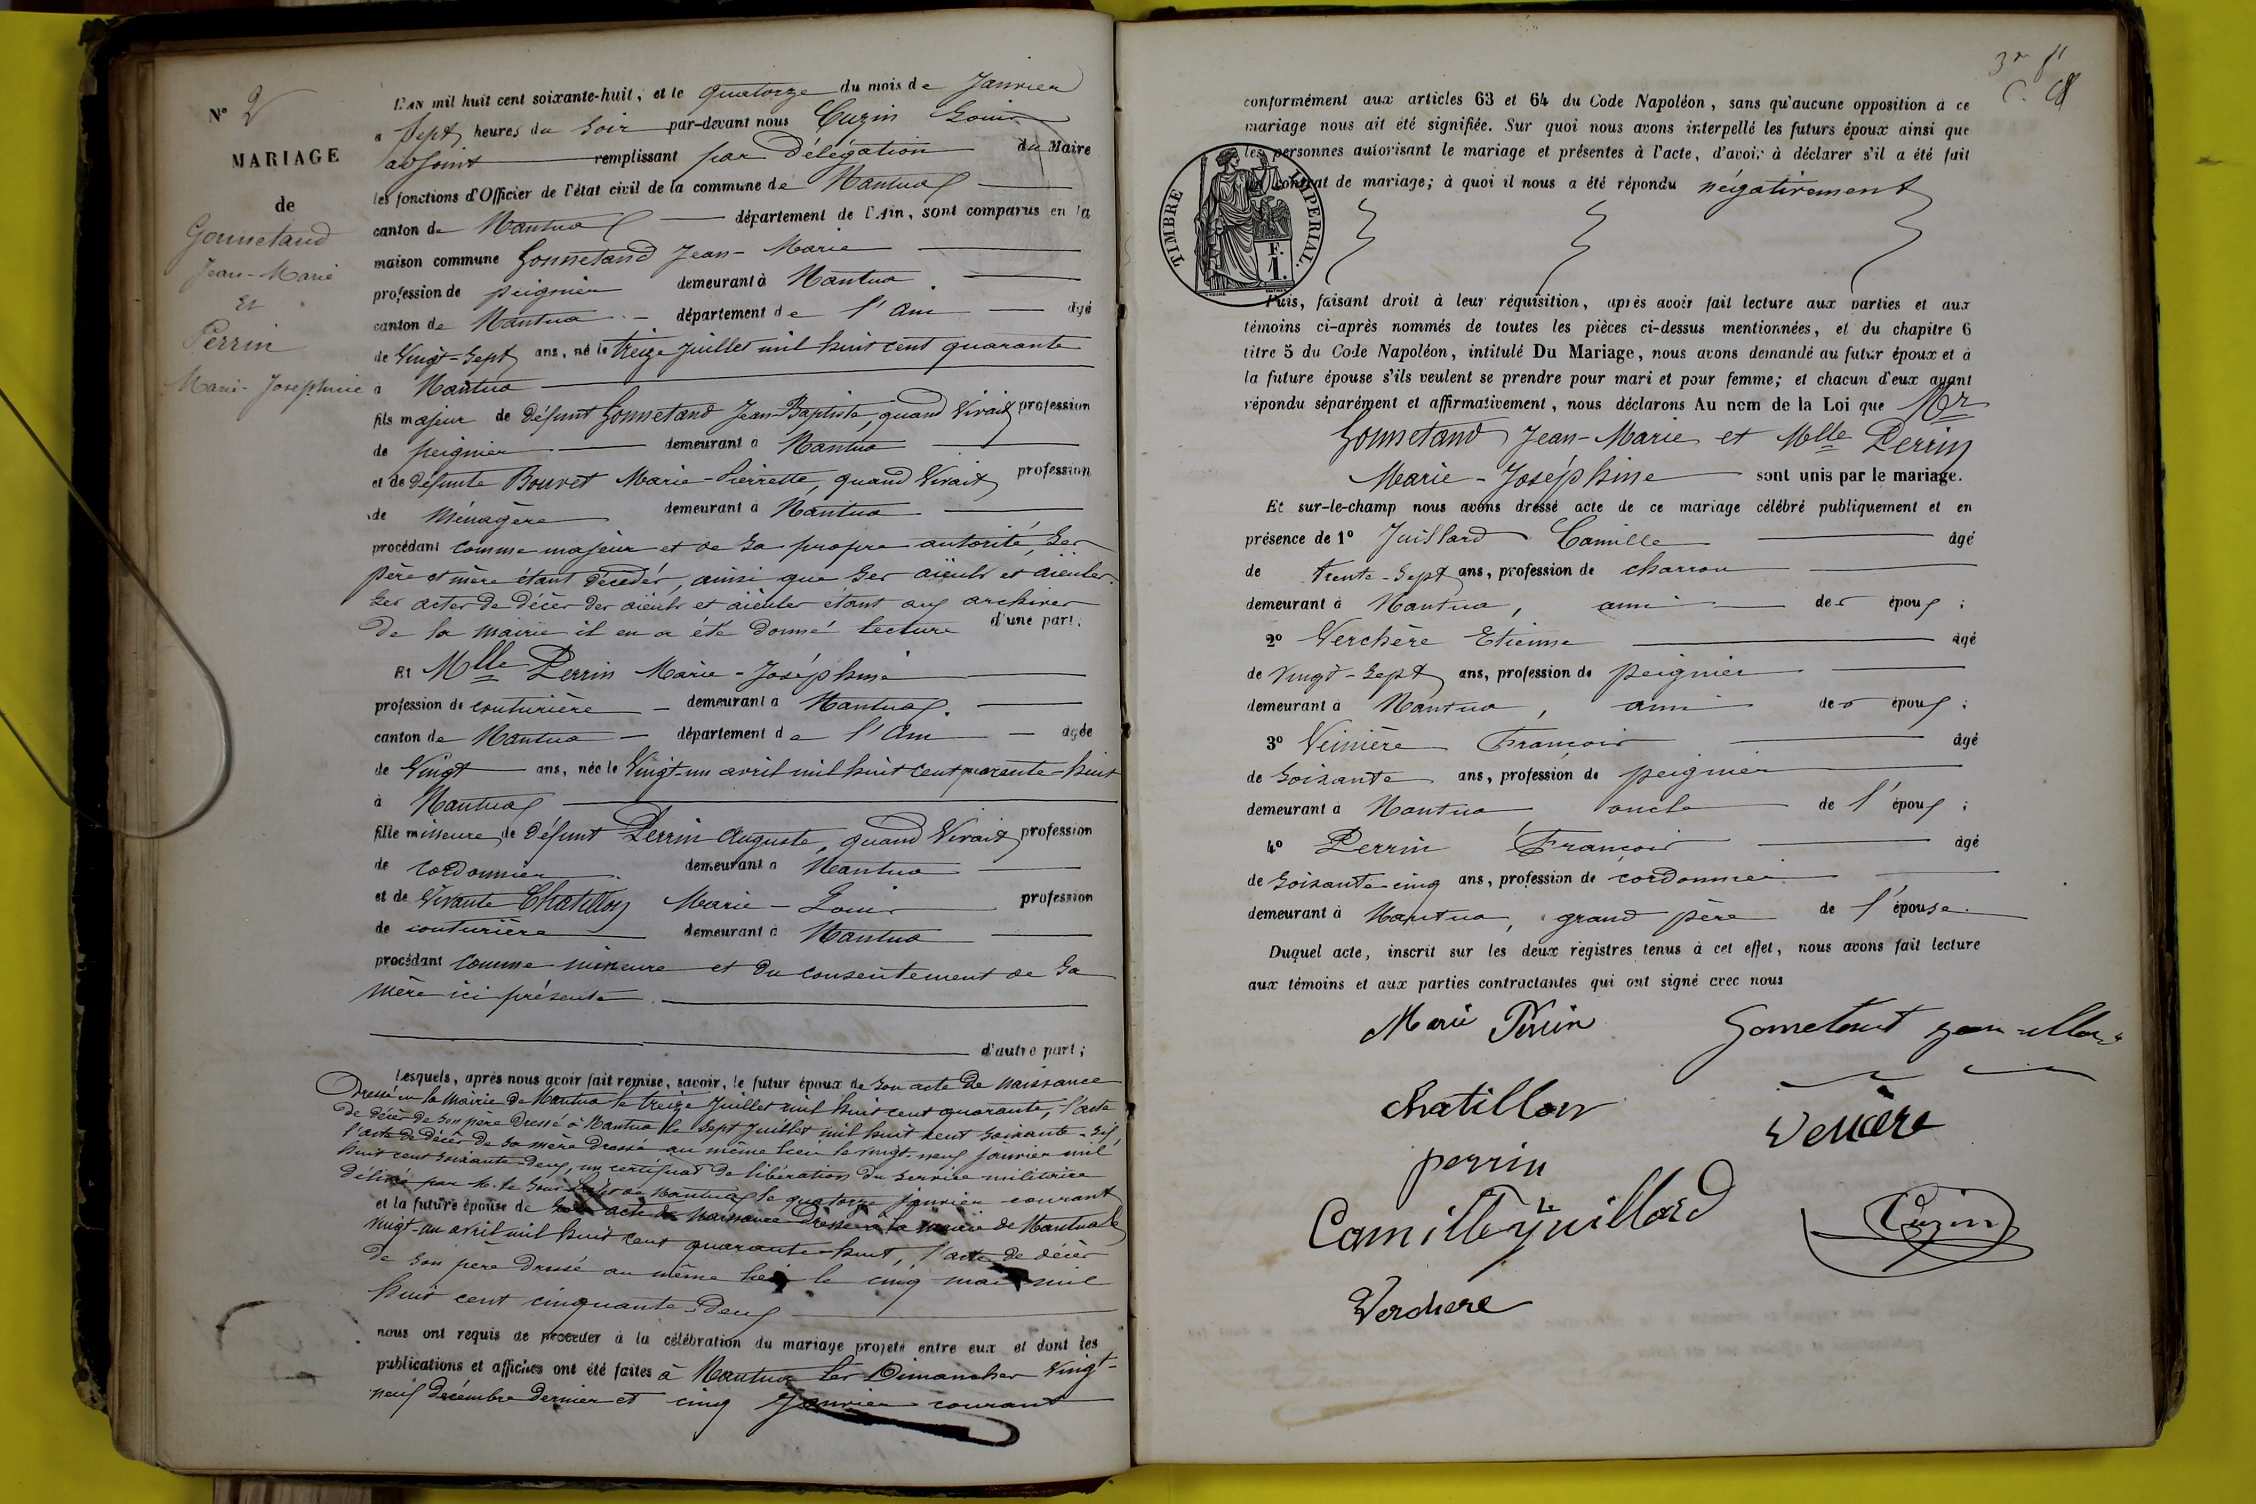 N° 2
MARIAGE
de
Gonnetand
Jean-Marie
Et
Perrin
Marie-Joséphine
L'AN mil huit cent soixante-huit, et le quatorze du mois de Janvier
a Sept heures du Soir par-devant nous Cuzin Louis
adjoint remplissant par Délégation du Maire
les fonctions d'Officier de l'état civil de la commune de Nantua
canton de Nantua département de l'Ain, sont comparus en la
maison commune Gonnetand Jean-Marie
profession de peignier demeurant à Nantua
canton de Nantua département de l'Ain âgé
de Vingt-Sept ans, né le treize Juillet mil huit cent quarante
a Nantua
fils majeur de défunt Gonnetand Jean-Baptiste, quand Vivait profession
de peignier demeurant a Nantua
et de défunte Bouvet Marie-Pierrette, quand Vivait profession
de Ménagère demeurant a Nantua
procédant comme majeur et de Sa propre autorité, Ses
père et mère étant décédés, ainsi que Ses aïeuls et aïeules.
Les actes de décès des aïeuls et aïeules étant aux archives
de la mairie il en a été donné lecture d'une part;
Et Mlle Perrin Marie-Joséphine
profession de couturière demeurant a Nantua.
canton de Nantua département de l'Ain âgée
de Vingt ans, née le Vingt-un avril mil huit cent quarante-huit
à Nantua
fille mineure de défunt Perrin Auguste, quand Vivait profession
de cordonnier demeurant a Nantua
et de Vivante Chatillon Marie-Louise profession
de couturière demeurant à Nantua
procédant comme mineure et du consentement de Sa
mère ici présente.
d'autre part;
Lesquels, après nous avoir fait remise, savoir, le futur époux de Son acte de Naissance
Dressé en la Mairie de Nantua le treize Juillet mil huit cent quarante, l'acte
de décès de Son père Dressé à Nantua le Sept Juillet mil huit cent Soixante-Six,
l'acte de décès de Sa mère Dressé au même lieu le vingt-neuf Janvier mil
huit cent Soixante-Deux, un certificat de libération du service militaire
délivré par M. le Sous Préfet de Nantua le quatorze janvier courant
et la future épouse de Son acte de Naissance Dressé à la Mairie de Nantua le
Vingt-un avril mil huit cent quarante-huit, l'acte de décès
de Son père Dressé au même lieu le cinq mai mil
huit cent cinquante-Deux
nous ont requis de procéder à la célébration du mariage projeté entre eux et dont les
publications et affiches ont été faites à Nantua les Dimanches Vingt-
neuf décembre dernier et cinq Janvier courant
conformément aux articles 63 et 64 du Code Napoléon, sans qu'aucune opposition a ce
mariage nous ait été signifiée. Sur quoi nous avons interpellé les futurs époux ainsi que
les personnes autorisant le mariage et présentes à l'acte, d'avoir à déclarer s'il a été fait
un contrat de mariage; à quoi il nous a été répondu négativement
TIMBRE IMPERIAL.
F.
1.
Puis, faisant droit à leur réquisition, après avoir fait lecture aux parties et aux
témoins ci-après nommés de toutes les pièces ci-dessus mentionnées, et du chapitre 6
titre 5 du Code Napoléon, intitulé Du Mariage, nous avons demandé au futur époux et à
la future épouse s'ils veulent se prendre pour mari et pour femme; et chacun d'eux ayant
répondu séparément et affirmativement, nous déclarons Au nom de la Loi que Mr
Gonnetand Jean-Marie et Mlle Perrin
Marie-Joséphine sont unis par le mariage.
Et sur-le-champ nous avons dressé acte de ce mariage célébré publiquement et en
présence de 1° Juillard Camille âgé
de trente-Sept ans, profession de charron
demeurant à Nantua, ami des époux;
2° Verchère Etienne âgé
de Vingt-Sept ans, profession de peignier
demeurant à Nantua, ami des époux;
3° Veinière François âgé
de Soixante ans, profession de peignier
demeurant a Nantua oncle de l'époux;
4° Perrin François âgé
de Soixante-cinq ans, profession de cordonnier
demeurant à Nantua, grand père de l'épouse.
Duquel acte, inscrit sur les deux registres tenus à cet effet, nous avons fait lecture
aux témoins et aux parties contractantes qui ont signé avec nous
Marie Perrin
Gonnetant
chatillon
perrin
Camille Juillard
Cuzin
Verchere